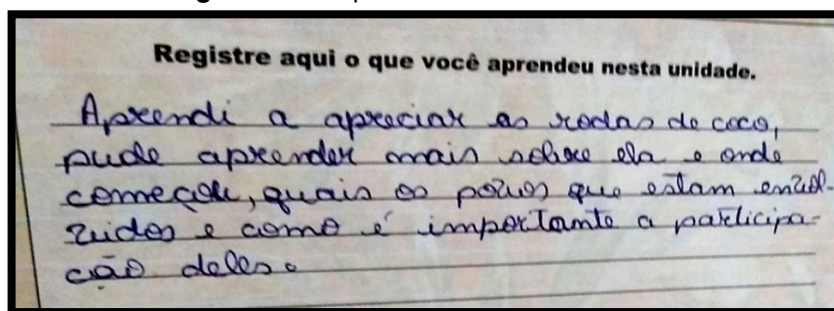 Registre aqui o que você aprendeu nesta unidade.
Aprendi a apreciar as rodas de coco,
pude aprender mais sobre ela e onde
começou, quais os povos que estam envol-
vidos e como é importante a participa-
ção deles.